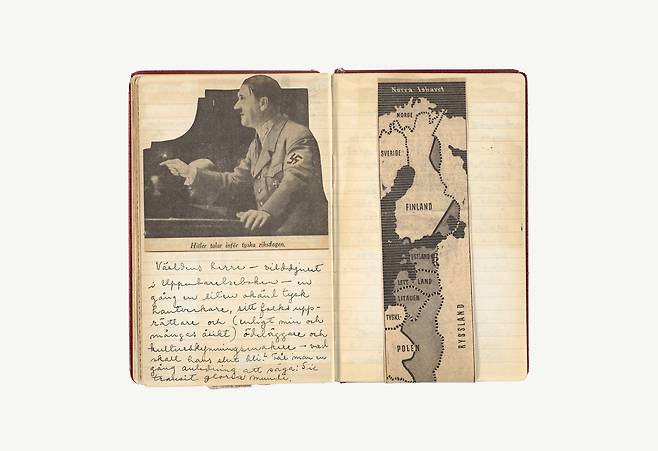 Hitler talar inför tyska riksdagen.
Världens herre – vilddjuret
i Uppenbarelseboken – en
gång en liten okänd tysk
hantverkare, sitt folks upp-
rättare och (enligt min och
mångas åsikt) ödeläggare och
kulturskymningsmakare – vad
skall hans slut bli? Får man en
gång anledning att säga: Sic
transit gloria mundi.
Norra Ishavet
NORGE
SVERIGE
FINLAND
ESTLAND
LETT LAND
LITAUEN
TYSKL.
POLEN
RYSSLAND